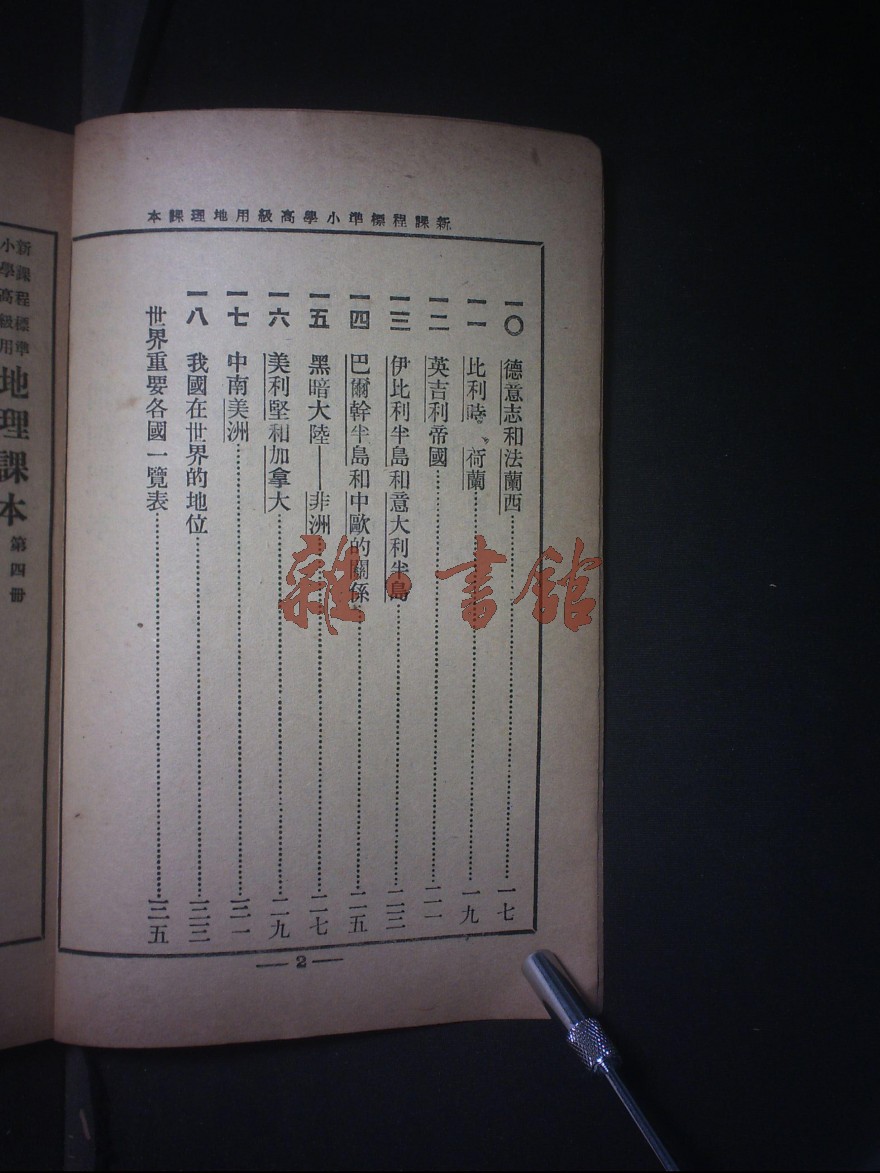 新課程標準小學高級用地理課本
一〇 德意志和法蘭西……一七
一一 比利時、荷蘭……一九
一二 英吉利帝國……二一
一三 伊比利半島和意大利半島……二三
一四 巴爾幹半島和中歐的關係……二五
一五 黑暗大陸——非洲……二七
一六 美利堅和加拿大……二九
一七 中南美洲……三一
一八 我國在世界的地位……三三
世界重要各國一覽表……三五
— 2 —
新課程標準
小學高級用
地理課本 第四冊
雜·書館